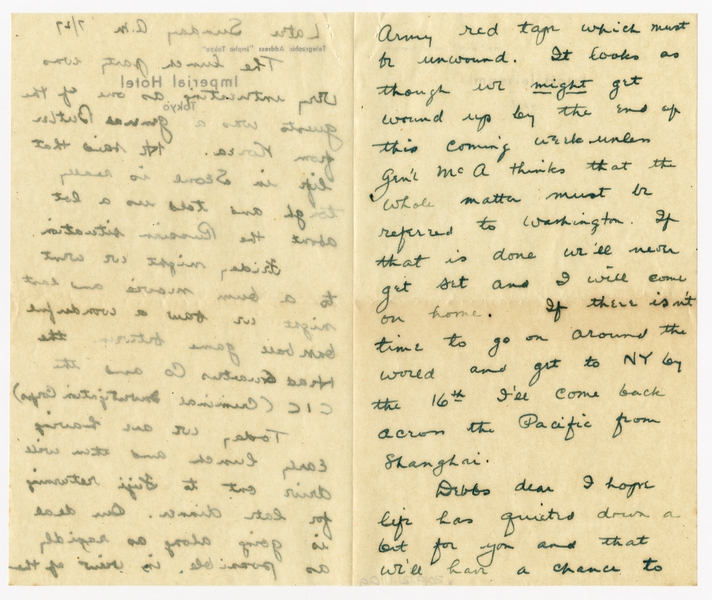 Later Sunday A.M 7/27
Telegraphic Address "Impho Tokyo"
The lunch party was
Imperial Hotel
very interesting as one of the
Tokyo
guests was a General Butler
from Korea. He said that
life in Seoul is really
tough and told us a lot
about the Russian situation
Friday night we went
to a bum movie and last
night we saw a wonderful
base ball game between the
Head Quarters Co and the
C I C (Criminal Investigation Corps)
Today we are having
early lunch and then will
drive out to Fuji returning
for late dinner. Our deal
is going along as rapidly
as possible in view of the
Army red tape which must
be unwound. It looks as
though we might get
wound up by the end of
this coming week unless
Gen'l McA thinks that the
whole matter must be
referred to Washington. If
that is done we'll never
get set and I will come
on home. If there isn't
time to go on around the
world and get to NY by
the 16th I'll come back
across the Pacific from
Shanghai.
Debbs dear I hope
life has quieted down a
bit for you and that
we'll have a chance to